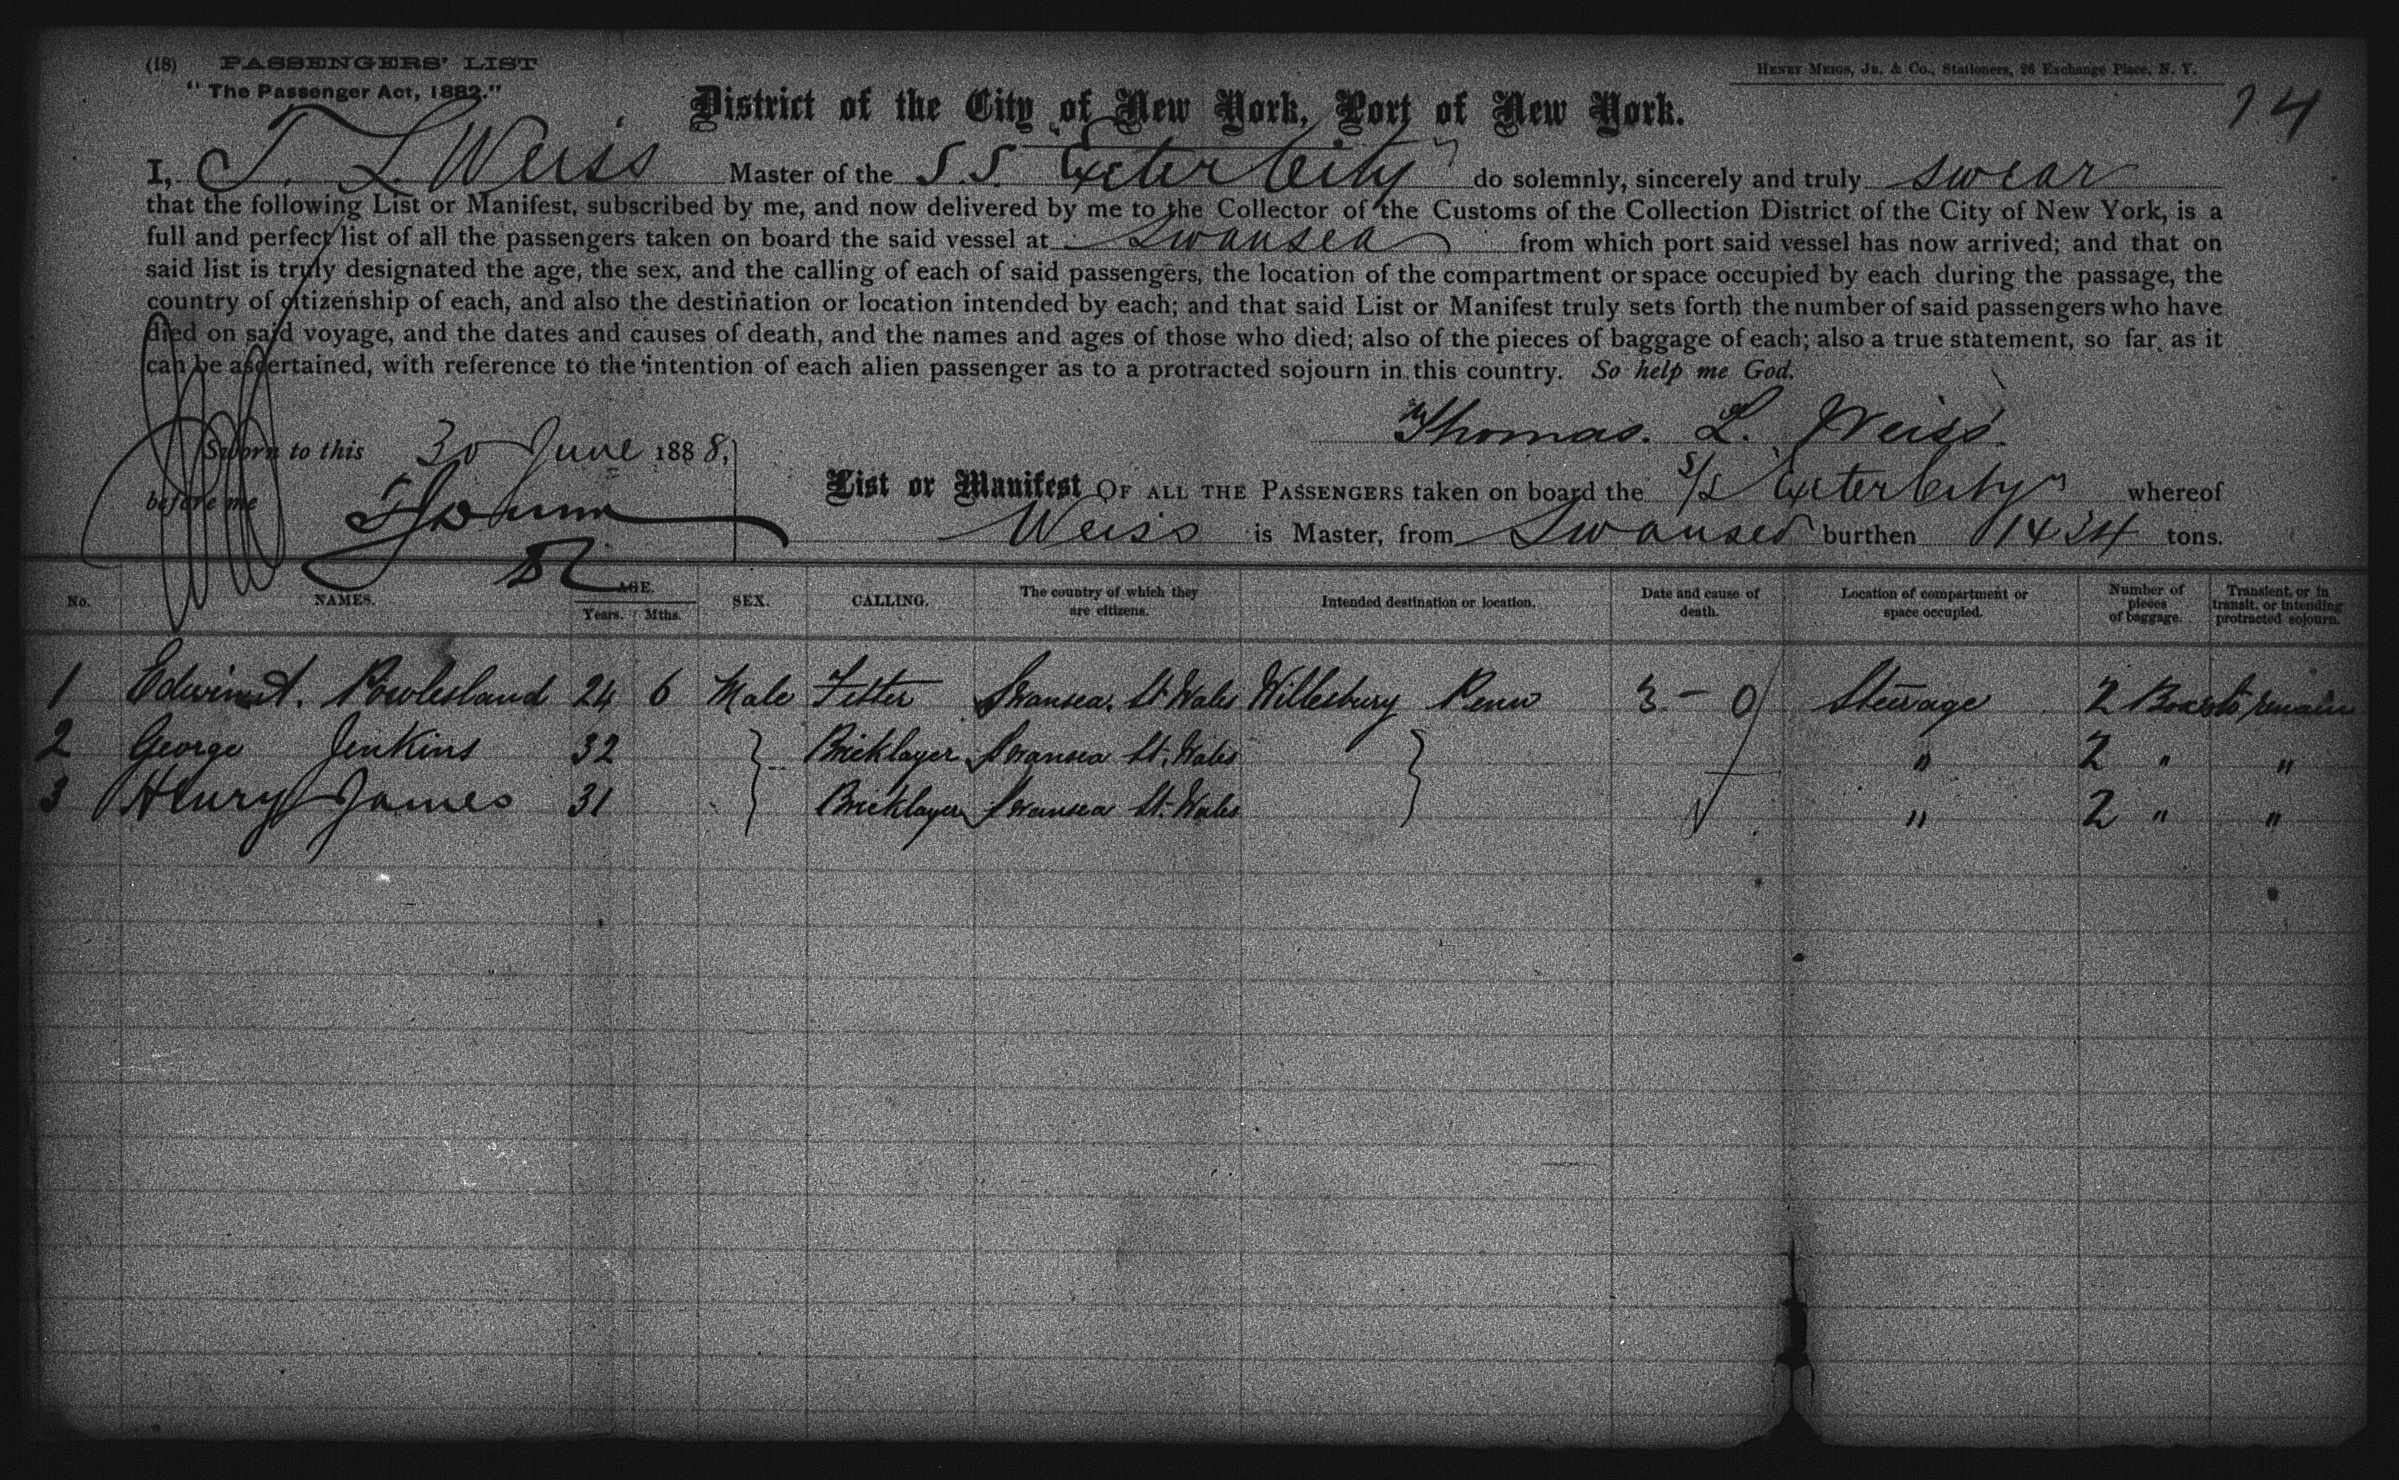 (18) PASSENGERS' LIST
HENRY MEIGS, JR. & CO., Stationers, 26 Exchange Place, N. Y.
"The Passenger Act, 1882."
District of the City of New York, Port of New York.
74
I, T. L. Weiss Master of the S.S. "Exeter City" do solemnly, sincerely and truly swear
that the following List or Manifest, subscribed by me, and now delivered by me to the Collector of the Customs of the Collection District of the City of New York, is a
full and perfect list of all the passengers taken on board the said vessel at Swansea from which port said vessel has now arrived; and that on
said list is truly designated the age, the sex, and the calling of each of said passengers, the location of the compartment or space occupied by each during the passage, the
country of citizenship of each, and also the destination or location intended by each; and that said List or Manifest truly sets forth the number of said passengers who have
died on said voyage, and the dates and causes of death, and the names and ages of those who died; also of the pieces of baggage of each; also a true statement, so far as it
can be ascertained, with reference to the intention of each alien passenger as to a protracted sojourn in this country. So help me God.
Thomas. L. Weiss
Sworn to this 30 June 1888,
before me
List or Manifest OF ALL THE PASSENGERS taken on board the S/S "Exeter City" whereof
Weiss is Master, from Swansea burthen 1434 tons.
No. NAMES. AGE. Years. Mths. SEX. CALLING. The country of which they are citizens. Intended destination or location. Date and cause of death. Location of compartment or space occupied. Number of pieces of baggage. Transient, or in transit, or intending protracted sojourn.
1 Edwin A. Powlesland 24 6 Male Fitter Swansea. St. Wales Willesbury Penn 3 - 0 Steerage 2 Boxes to remain
2 George Jenkins 32 Bricklayer Swansea St. Wales " 2 " "
3 Henry James 31 Bricklayer Swansea St. Wales " 2 " "